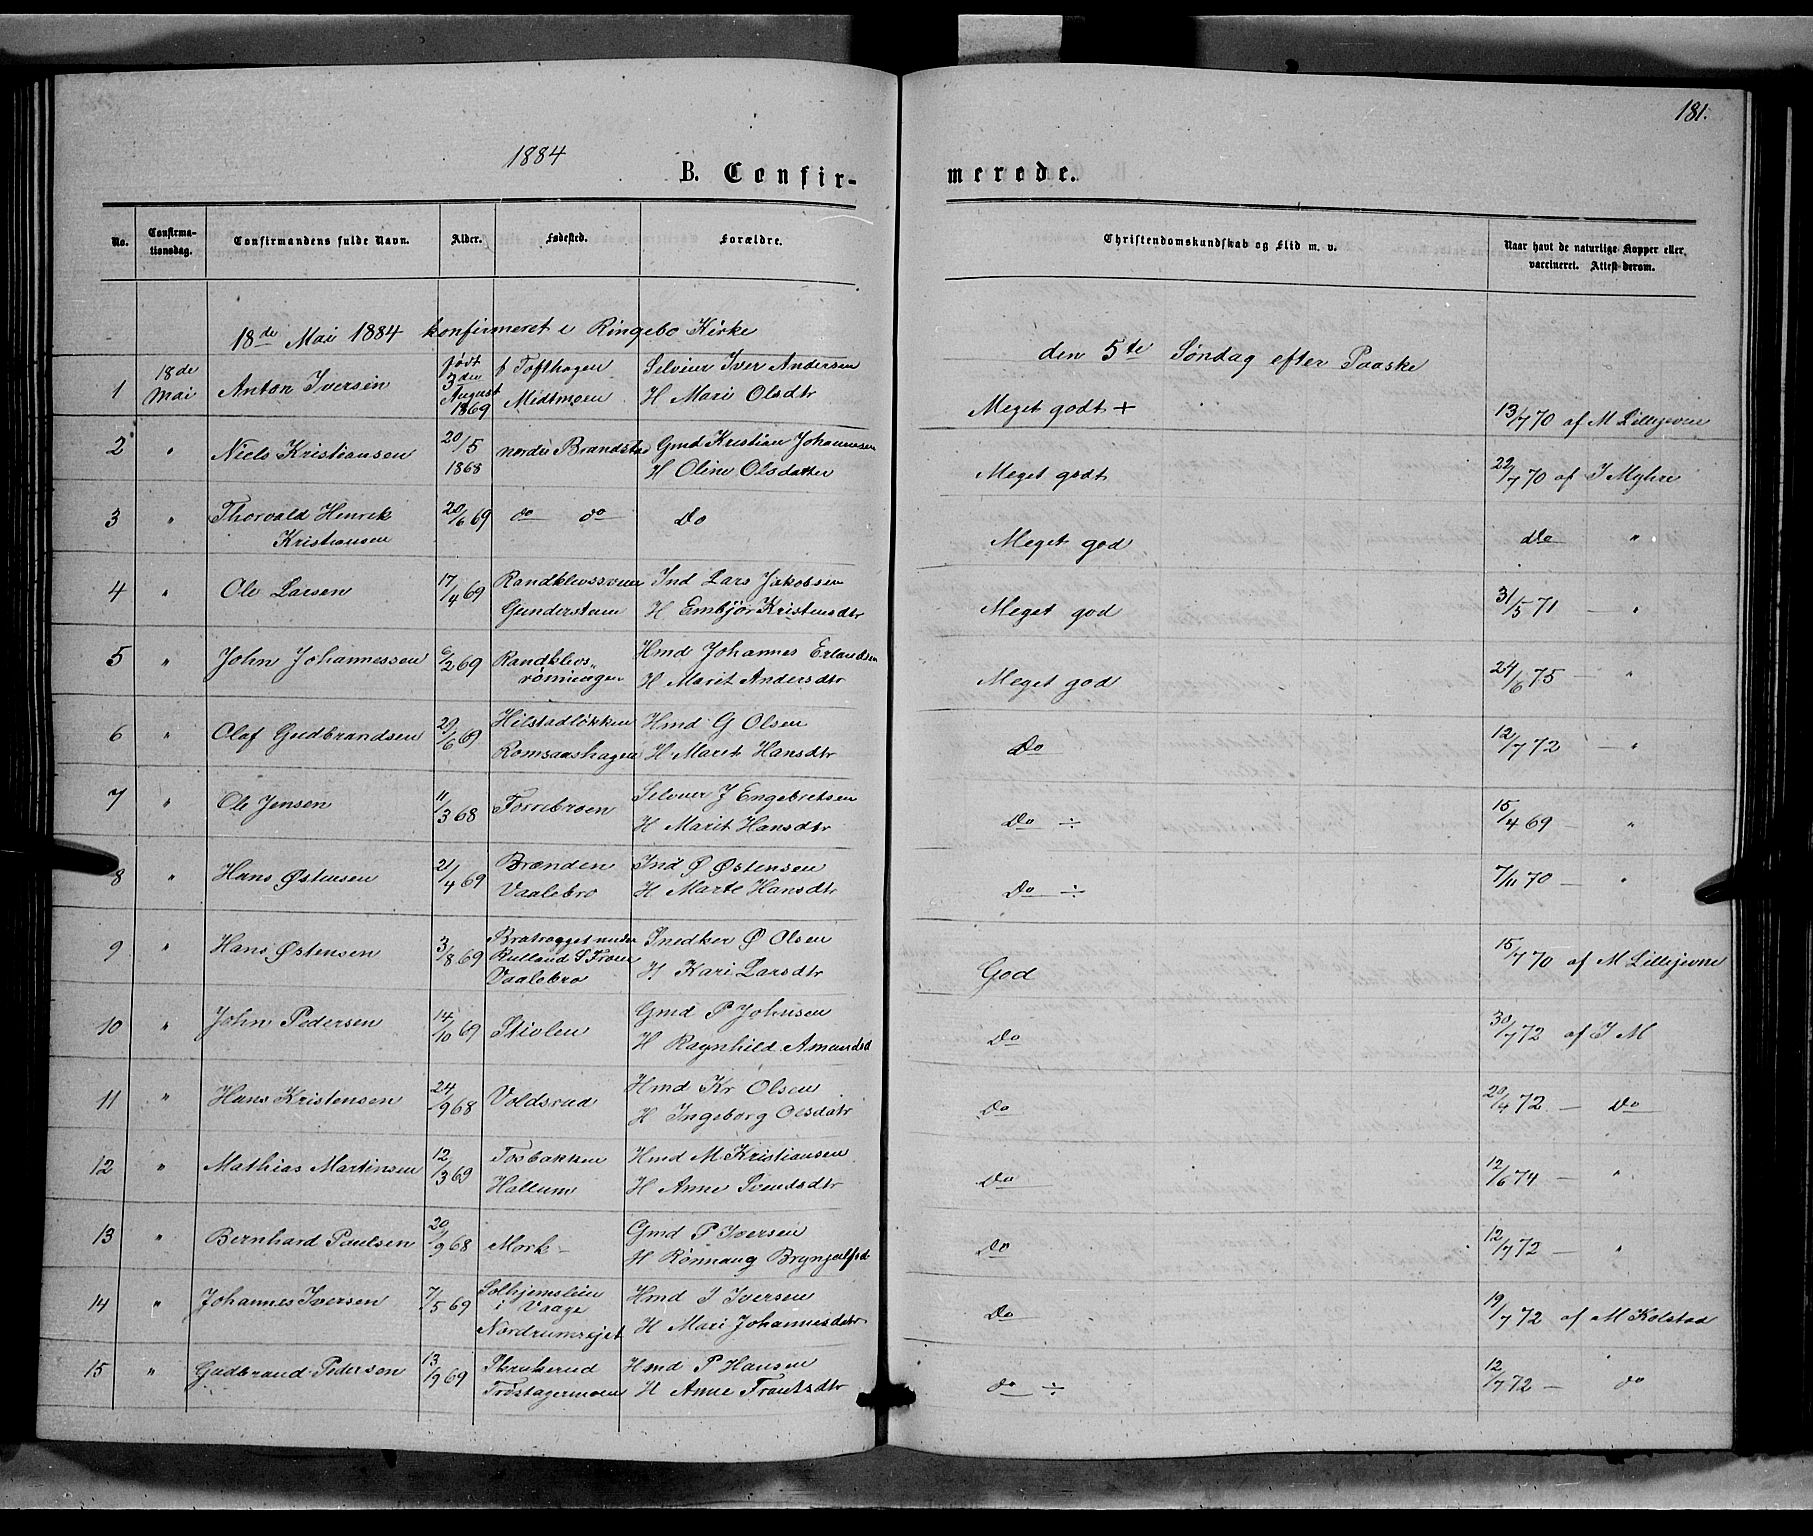 181.
1884
B. Confirmerede.
No.
Confirmationsdag.
Confirmandens fulde Navn.
Alder.
Fødested.
Forældre.
Christendomskundskab og Flid m. v.
Naar havt de naturlige Kopper eller vaccineret. Attest derom.
18de Mai 1884 konfirmeret i Ringebo Kirke
den 5te Søndag efter Paaske
1 18de Mai Anton Iversen født 3die August 1869 f Tofthagen Midtmoen Selveier Iver Andersen
H Mari Olsdtr Meget godt + 13/7 70 af M Lillejevne
2 " Niels Kristiansen 20/5 1868 nordre Brandstad Gmd Kristian Johannesen
H Oline Olsdatter Meget godt 22/7 70 af I Myhre
3 " Thorvald Henrik Kristiansen 20/6 69 do do Do Meget god do "
4 " Ole Larsen 17/4 69 Randklevsveen Gunderstuen Ind Lars Jakobsen
H Embjør Kristensdtr Meget god 31/5 71 — "
5 " John Johannessen 6/2 69 Randklevs„rønningen Hmd Johannes Erlandsen
H Marit Andersdtr Meget god 24/6 75 — "
6 " Olaf Gudbrandsen 29/6 69 Hilstadløkken Romsaashagen Hmd G Olsen
H Marit Hansdtr Do 12/7 72 — "
7 " Ole Jensen 11/3 68 Forrebroen Selveier J Engebretsen
H Marit Hansdtr Do ÷ 15/4 69 — "
8 " Hans Østensen 21/4 69 Brænden Vaalebro Ind Ø Østensen
H Marte Hansdtr Do ÷ 7/11 70 — "
9 " Hans Østensen 3/8 69 Bratrogget under Rulland S Fron Vaalebro Snedker Ø Olsen
H Kari Larsdtr God 15/7 70 af M Lillejevne
10 " John Pedersen 14/10 69 Stivlen Gmd P Johnsen
H Ragnhild Amundsd Do 30/7 72 af I M
11 " Hans Kristensen 24/9 68 Voldsrud Hmd Kr Olsen
H Ingeborg Olsdatr Do 20/4 72 — Do
12 " Mathias Martinsen 12/3 69 Fosbakken Hallum Hmd M Kristiansen
H Anne Svendsdtr Do 12/6 74 — "
13 " Bernhard Paulsen 20/9 68 Mork Gmd P Iversen
H Rønnaug Brynjulfsd Do 12/7 72 — "
14 " Johannes Iversen 7/5 69 Solhjemslien i Vaage Nordrumsejet Hmd I Iversen
H Mari Johannesdatr Do 19/7 72 af M Kolstad
15 " Gudbrand Pederson 13/9 69 Skrukerud Frøstagermoen Hmd P Hansen
H Anne Frantsdtr do ÷ 12/7 72 — do